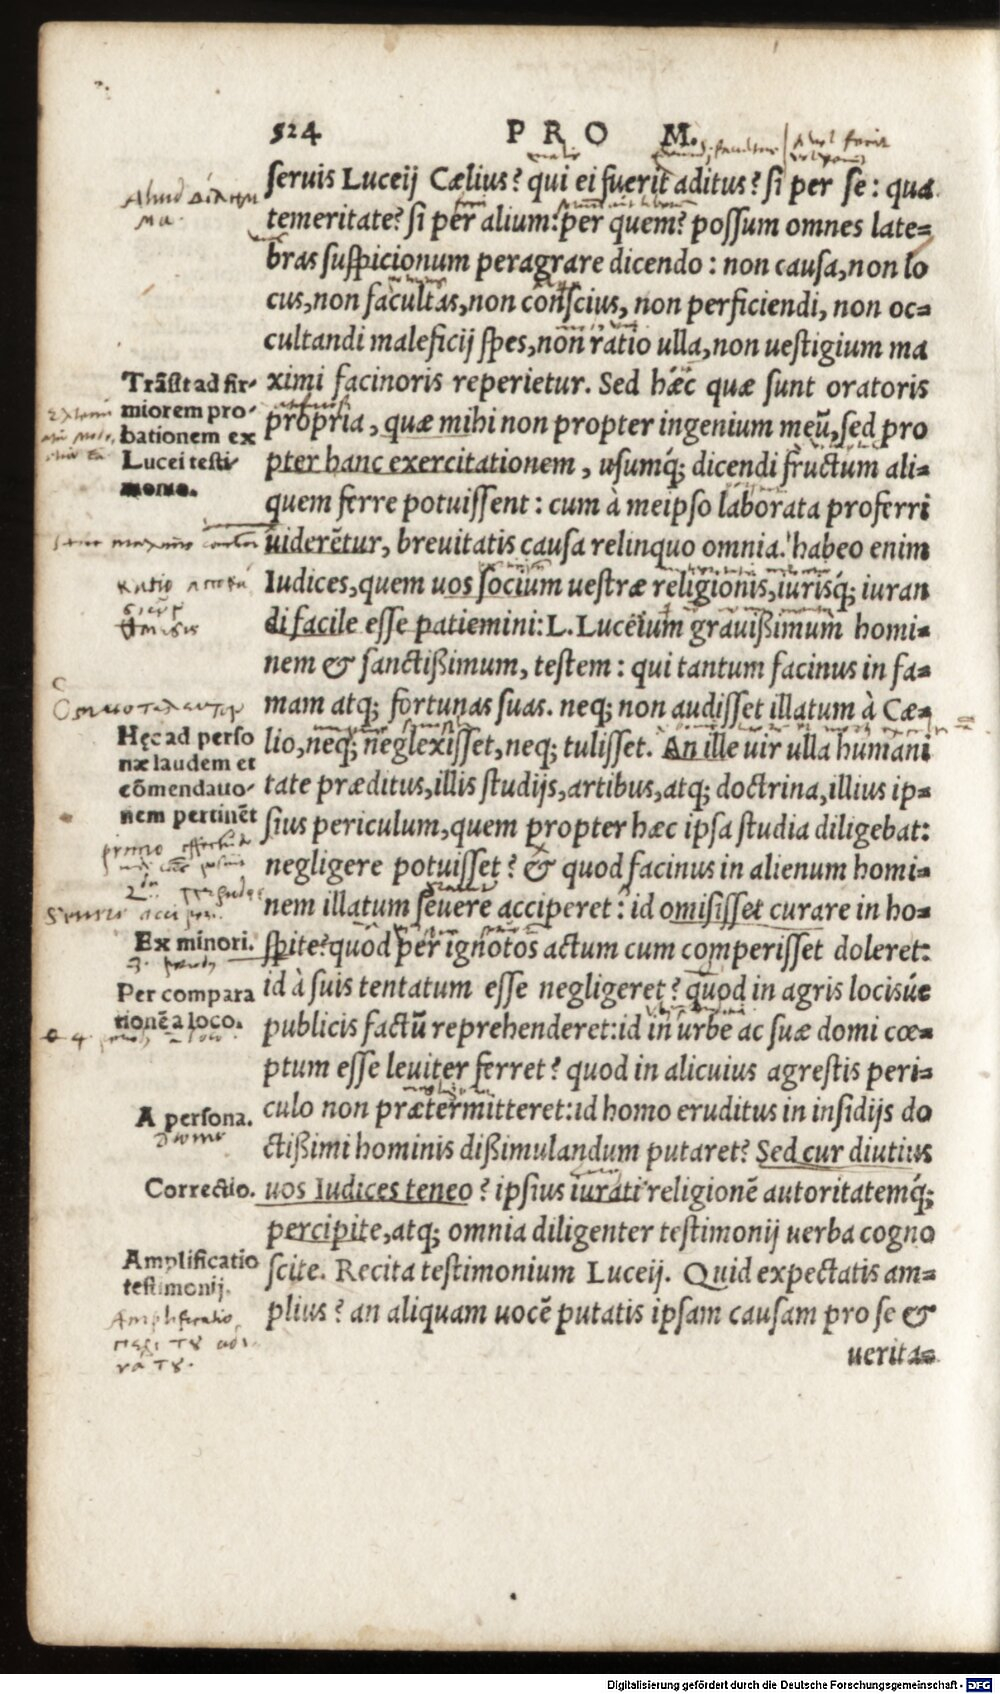 524 PRO M.
seruis Luceij Cælius? qui ei fuerit aditus? si per se: qua
temeritate? si per alium: per quem? possum omnes late=
bras suspicionum peragrare dicendo: non causa, non lo
cus, non facultas, non conscius, non perficiendi, non oc=
cultandi maleficij spes, non ratio ulla, non uestigium ma
ximi facinoris reperietur. Sed hæc quæ sunt oratoris
propria, quæ mihi non propter ingenium meũ, sed pro
pter hanc exercitationem, usumq́; dicendi fructum ali=
quem ferre potuissent: cum à meipso laborata proferri
uiderẽtur, breuitatis causa relinquo omnia. habeo enim
Iudices, quem uos socium uestræ religionis, iurisq́; iuran
di facile esse patiemini: L. Lucëium grauißimum homi=
nem & sanctißimum, testem: qui tantum facinus in fa=
mam atq; fortunas suas. neq; non audisset illatum à Cæ=
lio, neq; neglexisset, neq; tulisset. An ille uir ulla humani
tate præditus, illis studijs, artibus, atq; doctrina, illius ip=
sius periculum, quem propter hæc ipsa studia diligebat:
negligere potuisset? & quod facinus in alienum homi=
nem illatum seuere acciperet: id omisisset curare in ho=
spite? quod per ignotos actum cum comperisset doleret:
id à suis tentatum esse negligeret? quod in agris locisúe
publicis factũ reprehenderet: id in urbe ac suæ domi cœ=
ptum esse leuiter ferret? quod in alicuius agrestis peri=
culo non prætermitteret: id homo eruditus in insidijs do
ctißimi hominis dißimulandum putaret? Sed cur diutius
uos Iudices teneo? ipsius iurati religionẽ autoritatemq́;
percipite, atq; omnia diligenter testimonij uerba cogno
scite. Recita testimonium Luceij. Quid expectatis am=
plius? an aliquam uocẽ putatis ipsam causam pro se &
uerita=
Trãsit ad fir-
miorem pro-
bationem ex
Lucei testi-
monio.
Hęc ad perso
næ laudem et
cõmendatio-
nem pertinẽt
Ex minori.
Per compara
tionẽ a loco.
A persona.
Correctio.
Amplificatio
testimonij.
Amplificatio
Digitalisierung gefördert durch die Deutsche Forschungsgemeinschaft - DFG